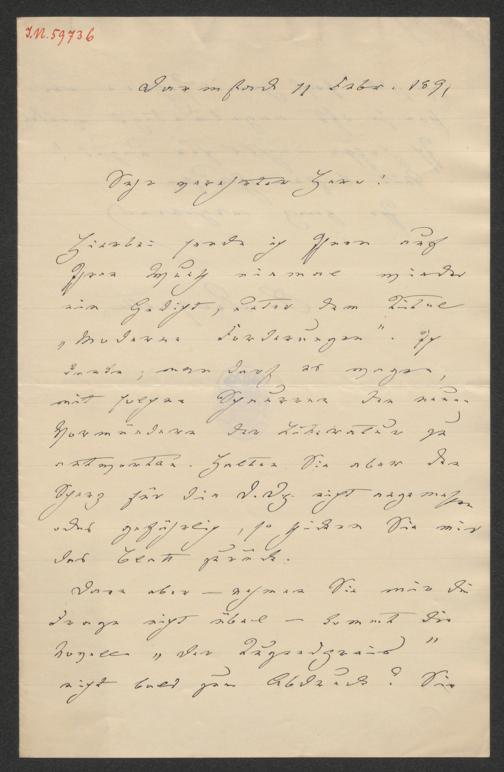 I.N. 59736
Darmstadt 11 Febr. 1891
Sehr verehrter Herr!
Hierbei sende ich Ihnen auf
Ihren Wunsch einmal wieder
ein Gedicht, unter dem Titel
„Moderne Forderungen". Ich
denke, man darf es wagen,
mit solchen Schnurren den neuen
Vormündern der Literatur zu
antworten. Halten Sie aber den
Scherz für die D. Dg. nicht angemessen
oder gefährlich, so schicken Sie mir
das Blatt zurück.
Dann aber — nehmen Sie mir die
Frage nicht übel — kommt die
Novelle „Der Tugendpreis"
nicht bald zum Abdruck? Sie